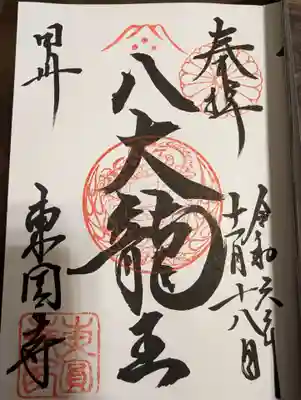 奉拝
令和六年
十一月十八日
八大龍王
東圓寺